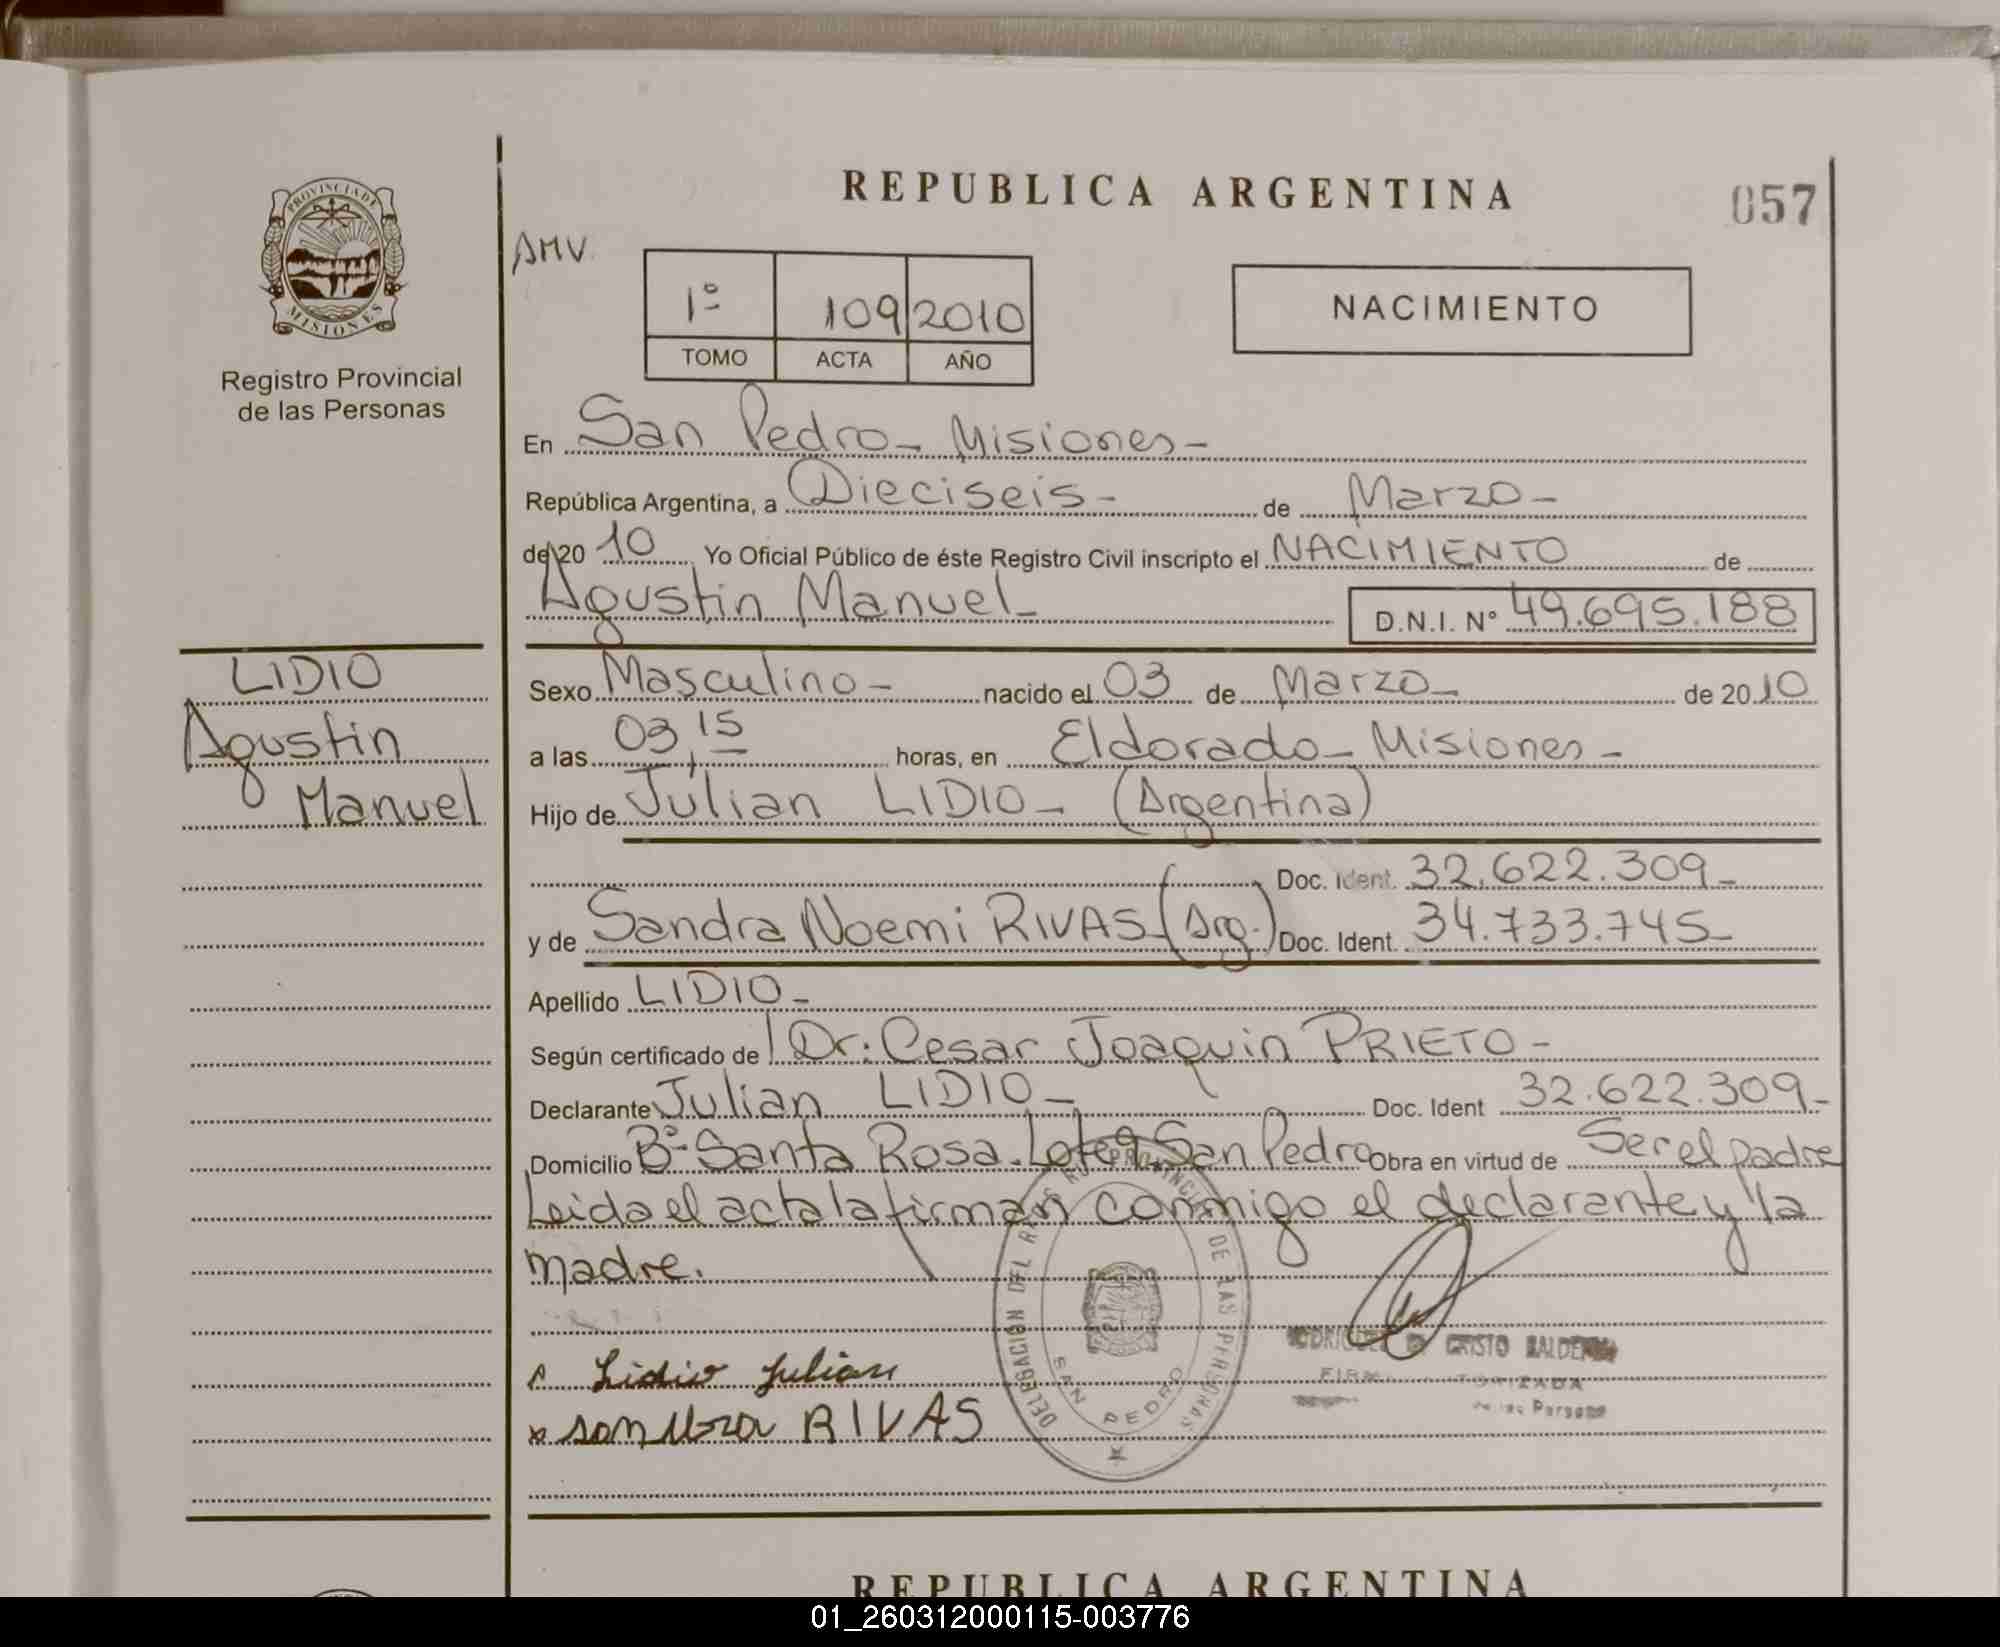 REPUBLICA ARGENTINA
057
PROVINCIA DE
MISIONES
Registro Provincial
de las Personas
AMV.
1º 109 2010
TOMO ACTA AÑO
NACIMIENTO
En San Pedro - Misiones -
República Argentina, a Dieciseis - de Marzo -
de 20 10 Yo Oficial Público de éste Registro Civil inscripto el NACIMIENTO de
Agustin Manuel - D.N.I. Nº 49.695.188
LIDIO
Agustin
Manuel
Sexo Masculino - nacido el 03 de Marzo - de 2010
a las 03,15 horas, en Eldorado - Misiones -
Hijo de Julian LIDIO - (Argentina)
Doc. Ident. 32.622.309 -
y de Sandra Noemi RIVAS (Arg.) Doc. Ident. 34.733.745 -
Apellido LIDIO -
Según certificado de Dr. Cesar Joaquin PRIETO -
Declarante Julian LIDIO - Doc. Ident 32.622.309 -
Domicilio Bº Santa Rosa. Lote 9 San Pedro Obra en virtud de Ser el padre
Leida el acta la firman conmigo el declarante y la
madre.
DELEGACION DEL REGISTRO PROVINCIAL DE LAS PERSONAS
SAN PEDRO
CRISTO
Lidio Julian
x sandra RIVAS
REPUBLICA ARGENTINA
01_260312000115-003776